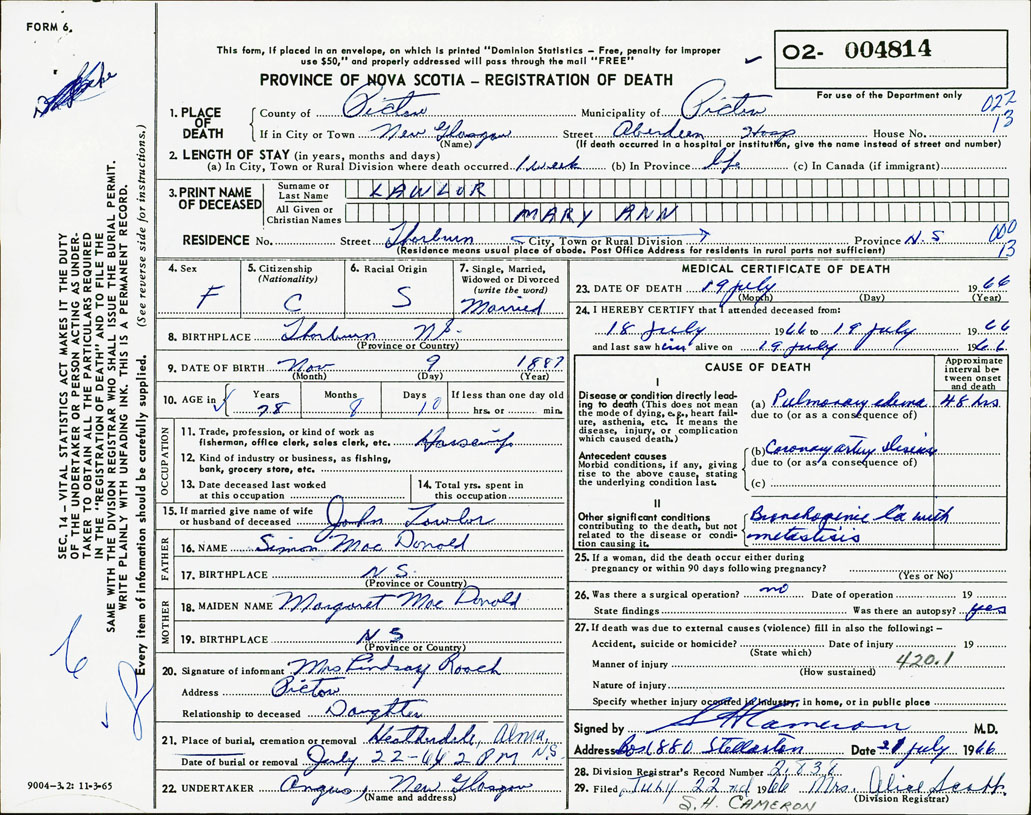 FORM 6.
This form, if placed in an envelope, on which is printed "Dominion Statistics – Free, penalty for improper
use $50," and properly addressed will pass through the mail "FREE"
02- 004814
PROVINCE OF NOVA SCOTIA – REGISTRATION OF DEATH
For use of the Department only
022
13
1. PLACE OF DEATH
County of Pictou Municipality of Pictou
If in City or Town New Glasgow Street Aberdeen Hosp House No.
(Name) (If death occurred in a hospital or institution, give the name instead of street and number)
2. LENGTH OF STAY (in years, months and days)
(a) In City, Town or Rural Division where death occurred 1 week (b) In Province life (c) In Canada (if immigrant)
3. PRINT NAME OF DECEASED
Surname or Last Name LAWLOR
All Given or Christian Names MARY ANN
RESIDENCE No. Street Thorburn City, Town or Rural Division Province N.S
(Residence means usual place of abode. Post Office Address for residents in rural parts not sufficient)
000
13
4. Sex F
5. Citizenship (Nationality) C
6. Racial Origin S
7. Single, Married, Widowed or Divorced (write the word) Married
8. BIRTHPLACE Thorburn N.S.
(Province or Country)
9. DATE OF BIRTH Nov 9 1887
(Month) (Day) (Year)
10. AGE in Years 78 Months 8 Days 10 If less than one day old hrs. or min.
OCCUPATION
11. Trade, profession, or kind of work as
fisherman, office clerk, sales clerk, etc. Housewife
12. Kind of industry or business, as fishing,
bank, grocery store, etc.
13. Date deceased last worked
at this occupation
14. Total yrs. spent in
this occupation
15. If married give name of wife
or husband of deceased John Lawlor
FATHER
16. NAME Simon Mac Donald
17. BIRTHPLACE N.S.
(Province or Country)
MOTHER
18. MAIDEN NAME Margaret Mac Donald
19. BIRTHPLACE N S
(Province or Country)
20. Signature of informant Mrs Lindsay Roach
Address Pictou
Relationship to deceased Daughter
21. Place of burial, cremation or removal Heatherdale, Alma, N.S.
Date of burial or removal July 22-66 2 PM
22. UNDERTAKER Angus, New Glasgow
(Name and address)
MEDICAL CERTIFICATE OF DEATH
23. DATE OF DEATH 19 July 1966
(Month) (Day) (Year)
24. I HEREBY CERTIFY that I attended deceased from:
18 July 1966 to 19 July 1966
and last saw him alive on 19 July 1966
CAUSE OF DEATH
Approximate interval between onset and death
I
Disease or condition directly leading to death (This does not mean
the mode of dying, e.g., heart failure, asthenia, etc. It means the
disease, injury, or complication
which caused death.)
(a) Pulmonary edema 48 hrs
due to (or as a consequence of)
Antecedent causes
Morbid conditions, if any, giving
rise to the above cause, stating
the underlying condition last.
(b) Coronary artery disease
due to (or as a consequence of)
(c)
II
Other significant conditions
contributing to the death, but not
related to the disease or condition causing it.
Bronchogenic Ca with
metastisis
25. If a woman, did the death occur either during
pregnancy or within 90 days following pregnancy?
(Yes or No)
26. Was there a surgical operation? no Date of operation 19
State findings Was there an autopsy? yes
27. If death was due to external causes (violence) fill in also the following: –
Accident, suicide or homicide? Date of injury 19
(State which)
Manner of injury 420.1
(How sustained)
Nature of injury
Specify whether injury occurred in industry, in home, or in public place
Signed by S H Cameron M.D.
Address Box 880 Stellarton Date 21 July 1966
28. Division Registrar's Record Number
29. Filed July 22nd 1966 Mrs. Alice Scott
(Division Registrar)
S.H. CAMERON
SEC. 14 – VITAL STATISTICS ACT MAKES IT THE DUTY
OF THE UNDERTAKER OR PERSON ACTING AS UNDER-
TAKER TO OBTAIN ALL THE PARTICULARS REQUIRED
IN THE "REGISTRATION OF DEATH" AND TO FILE THE
SAME WITH THE DIVISION REGISTRAR WHO SHALL ISSUE THE BURIAL PERMIT.
WRITE PLAINLY WITH UNFADING INK. THIS IS A PERMANENT RECORD.
Every item of information should be carefully supplied. (See reverse side for instructions.)
9004-3.2: 11-3-65